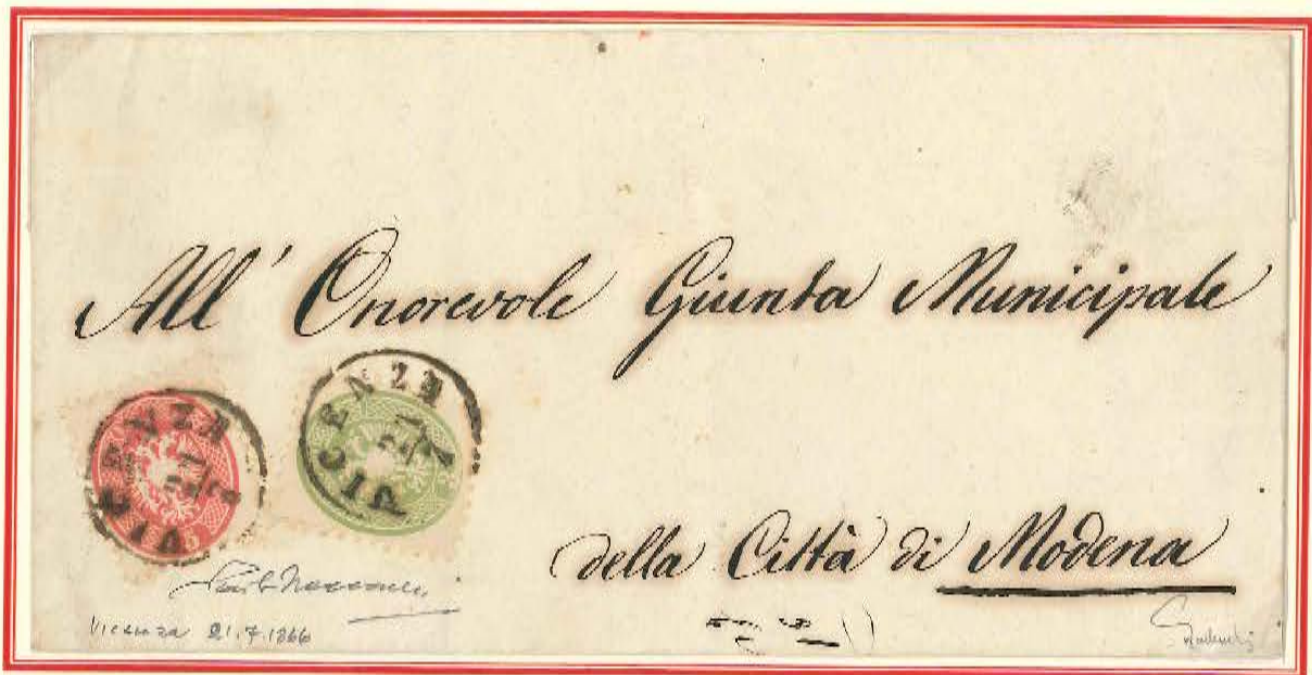 All' Onorevole Giunta Municipale
VICENZA
21
7
VICENZA
21
7
5
della Città di Modena
Vicenza 21.7.1866